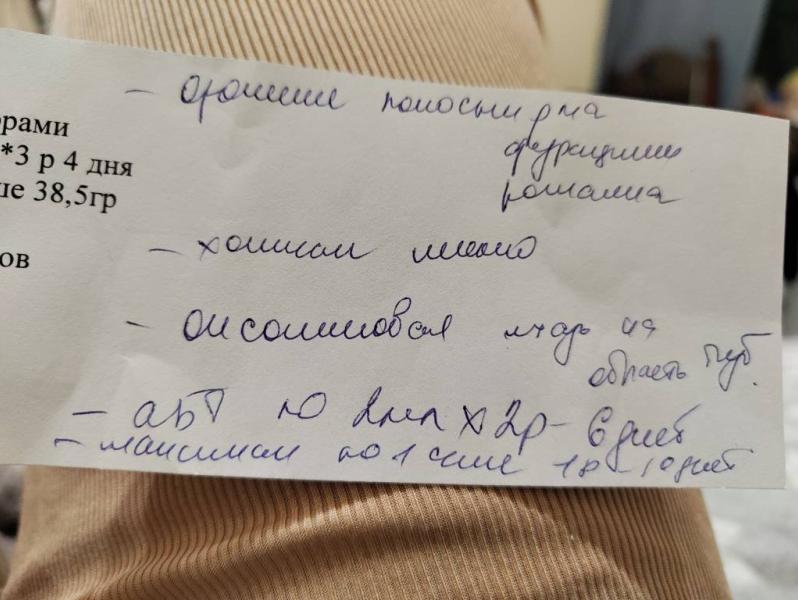 орами
*3 р 4 дня
ше 38,5гр
ов
– орошение полости рта
фурацилин
ромашка
– холисал
– оксолиновая мазь на
область губ.
– АБТ по 2мл х 2р – 6 дней
– максилак по 1 саше 1р – 10 дней